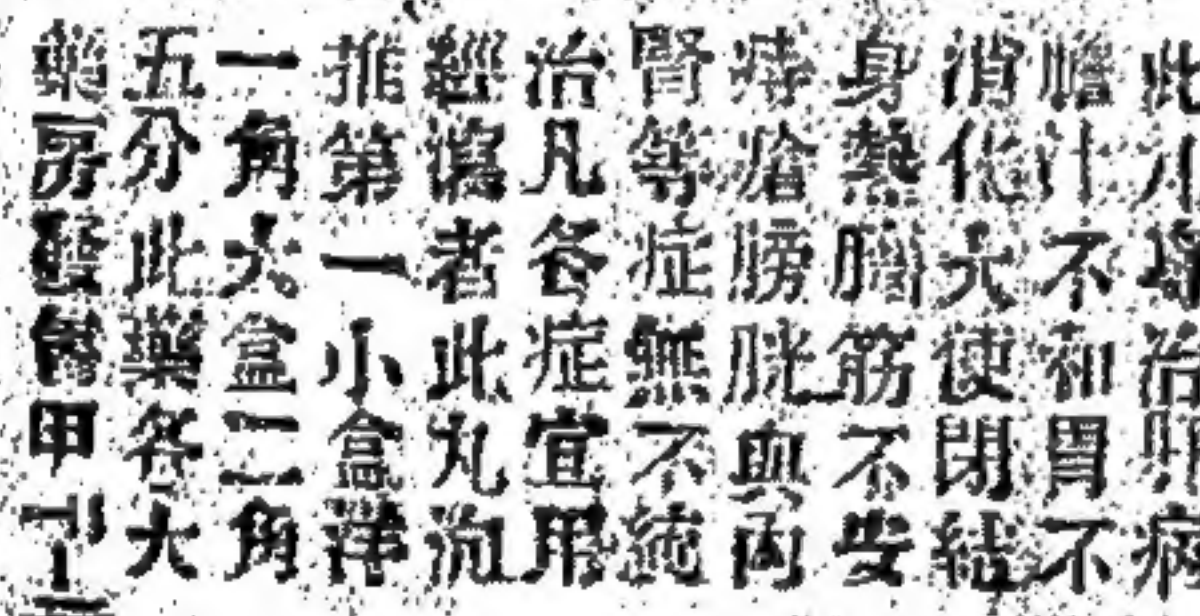 此丸專治肝病
膽汁不和胃不
消化大便閉結
身熱腦筋不安
痔瘡膀胱血內
腎等症無不統
治凡各症宜用
經瀉者此丸泡
推第一小盒洋
一角大盒二角
五分此藥各大
藥房發售甲